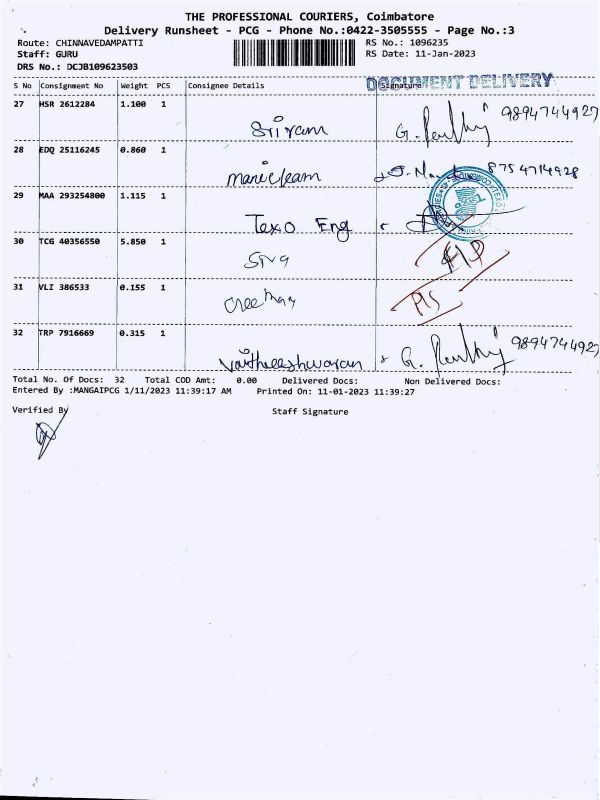 THE PROFESSIONAL COURIERS, Coimbatore
Delivery Runsheet - PCG - Phone No.:0422-3505555 - Page No.:3
Route: CHINNAVEDAMPATTI RS No.: 1096235
Staff: GURU RS Date: 11-Jan-2023
DRS No.: DCJB109623503
DOCUMENT DELIVERY
S No Consignment No Weight PCS Consignee Details Signature
27 HSR 2612284 1.100 1 Sriram 9894744927
28 EDQ 25116245 0.860 1 8754714928
29 MAA 293254800 1.115 1 Texo Eng
30 TCG 40356550 5.850 1 Siva
31 VLI 386533 0.155 1
32 TRP 7916669 0.315 1 Vaitheeshwaran 9894744927
Total No. Of Docs: 32 Total COD Amt: 0.00 Delivered Docs: Non Delivered Docs:
Entered By :MANGAIPCG 1/11/2023 11:39:17 AM Printed On: 11-01-2023 11:39:27
Verified By Staff Signature